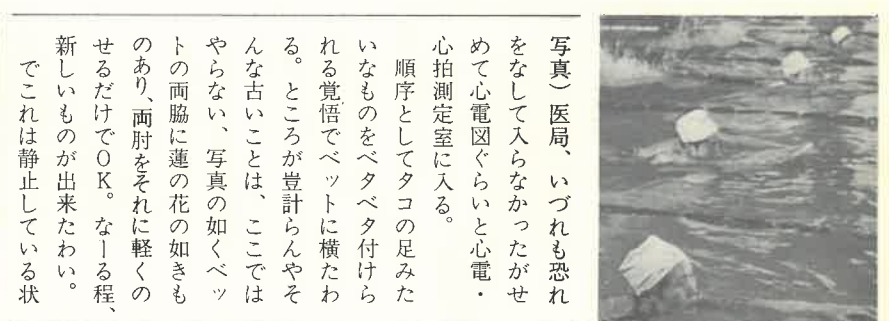 写真）医局、いづれも恐れ
をなして入らなかったがせ
めて心電図ぐらいと心電・
心拍測定室に入る。
　順序としてタコの足みた
いなものをベタベタ付けら
れる覚悟でベットに横たわ
る。ところが豈計らんやそ
んな古いことは、ここでは
やらない、写真の如くベッ
トの両脇に蓮の花の如きも
のあり、両肘をそれに軽くの
せるだけでＯＫ。なーる程、
新しいものが出来たわい。
　でこれは静止している状